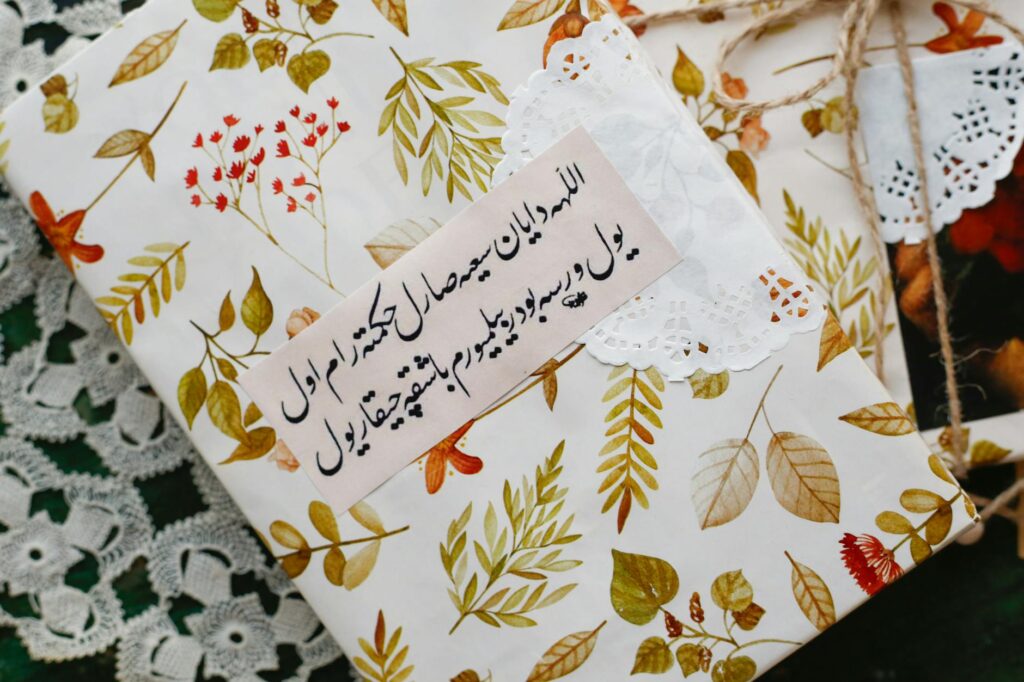 اللهه دایان سیعه صارل حکمته رام اول
یول ورسه بودر بیلمیورم باشقه چیقار یول